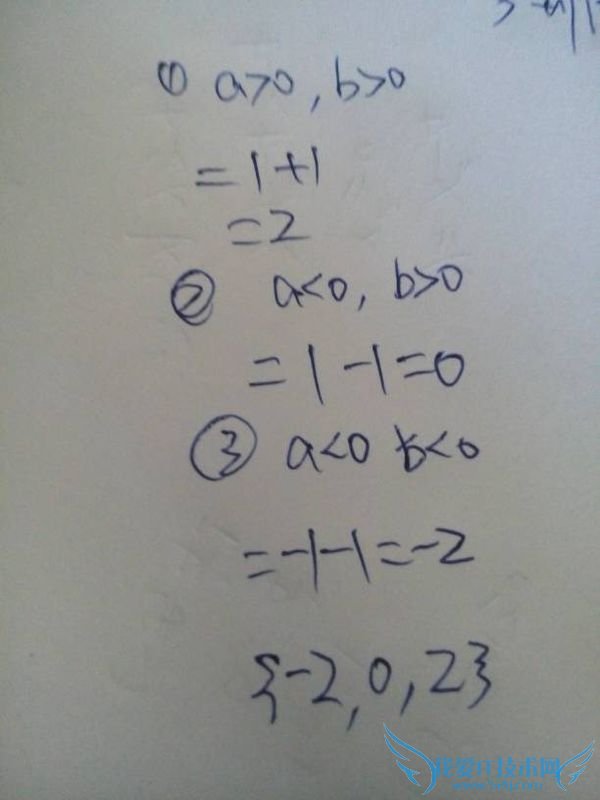 ① a>0, b>0
=1+1
=2
② a<0, b>0
=1-1=0
③ a<0 b<0
=-1-1=-2
{-2,0,2}